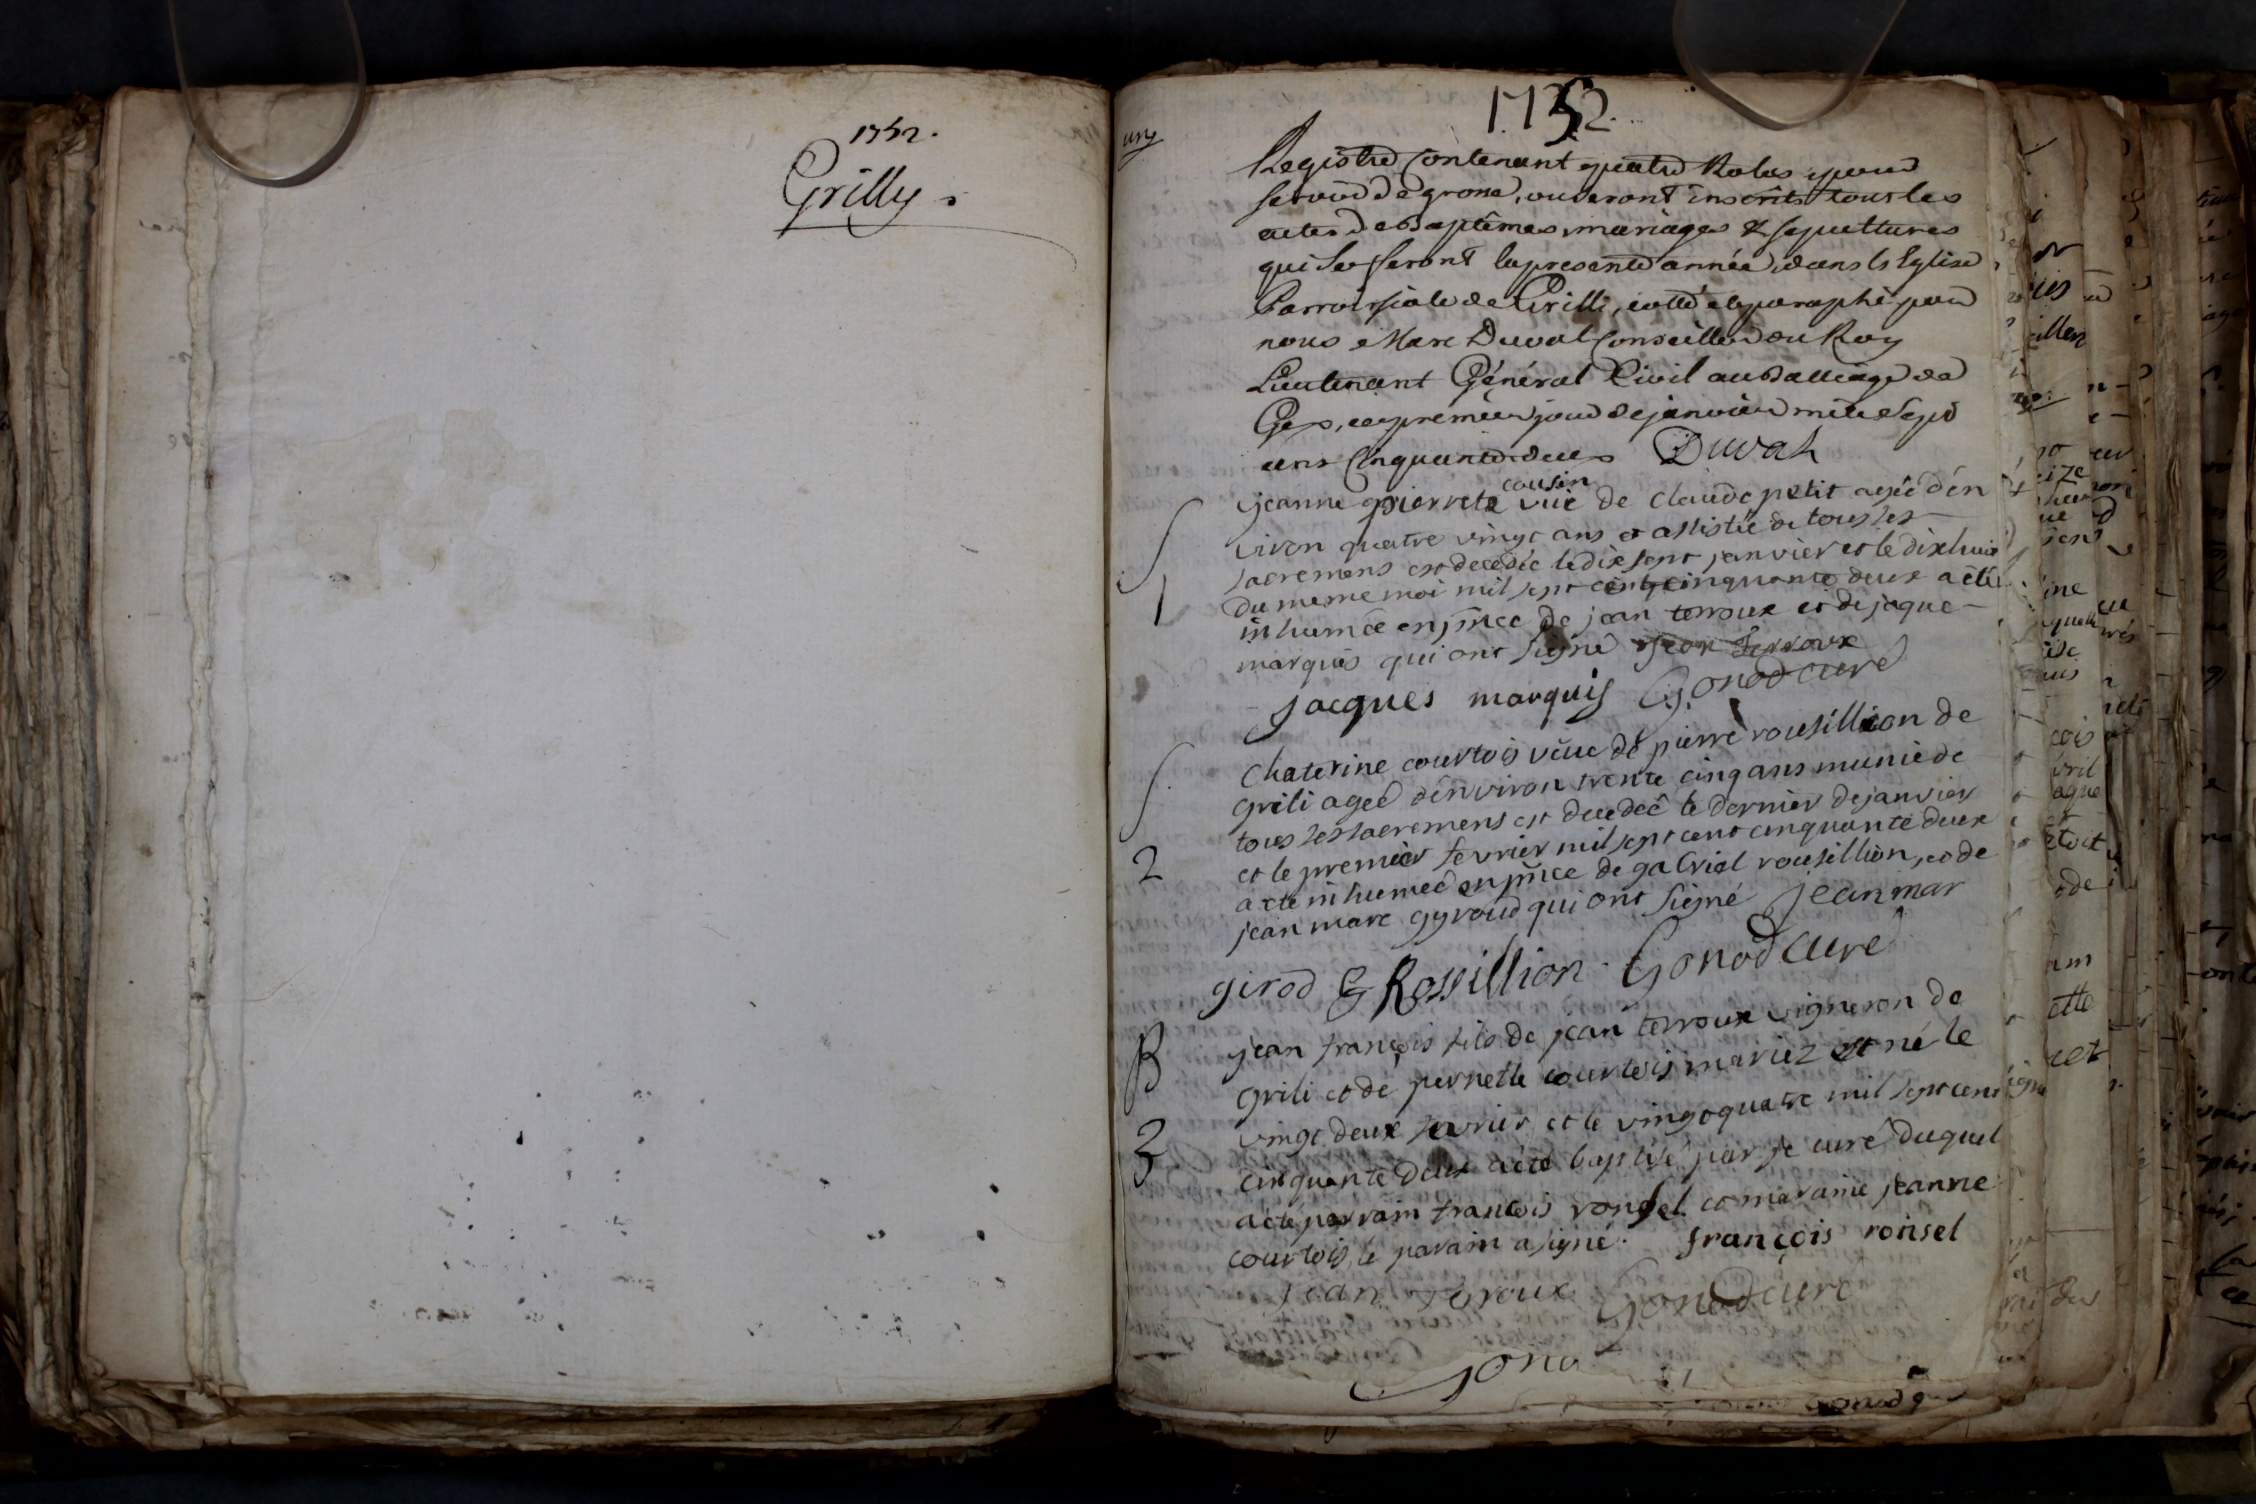 1752.
Grilly.
1752
Registre Contenant quatre Roles, pour
servir de grosse, ou seront inscrits tous les
actes de Baptêmes, mariages & sepultures
qui se feront la presente année, dans l'Eglise
Parroissiale de Grilli, cotté et paraphé par
nous Marc Duval Conseiller du Roy
Lieutenant Général Civil au Balliage de
Gex, ce premier jour de janvier mille sept
cens Cinquante deux Duval
cousin
jeanne pierrete vüe de claude petit agée d'en
viron quatre vingt ans et assistée de tous les
sacremens est decedée le dix sept janvier et le dix huit
du meme moi mil sept cent cinquante deux a été
inhumée en pnce de jean terroux et de jaque
marquis qui ont signé jean terroux
Jacques marquis Gonod curé
S
1
Chaterine courtois veue de pierre rousillion de
Grili ageé d'environ trente cinq ans munie de
tous les sacremens est decedeé le dernier de janvier
et le premier fevrier mil sept cent cinquante deux
a eté inhumeé en pnce de gabriel rousillion, et de
jean marc gyroud qui ont signé jean mar
girod G Rossillion Gonod curé
S
2
jean françois fils de jean terroux vigneron de
Grili et de pernette courtois mariez est né le
vingt deux fevrier et le vingt quatre mil sept cent
cinquante deux a eté baptisé par le curé duquel
a eté parrain francois ronsel et maraine jeanne
courtois, le parain a signé. françois ronsel
jean teroux Gonod curé
B
3